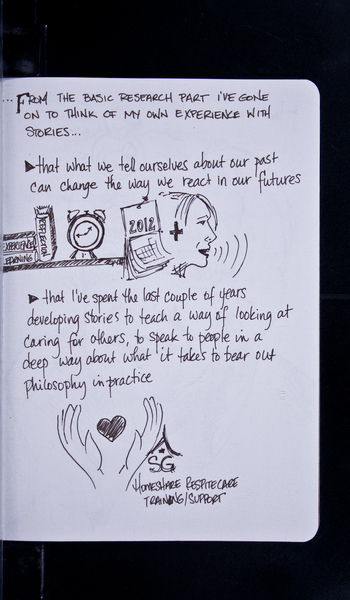 ...FROM THE BASIC RESEARCH PART I'VE GONE
ON TO THINK OF MY OWN EXPERIENCE WITH
STORIES...
▶that what we tell ourselves about our past
can change the way we react in our futures
REFLECTION
EXPERIENCE
LEARNING
2012
+
▶ that I've spent the last couple of years
developing stories to teach a way of looking at
caring for others, to speak to people in a
deep way about what it takes to bear out
philosophy in practice
SG
HOMESHARE RESPITE CARE
TRAINING/SUPPORT